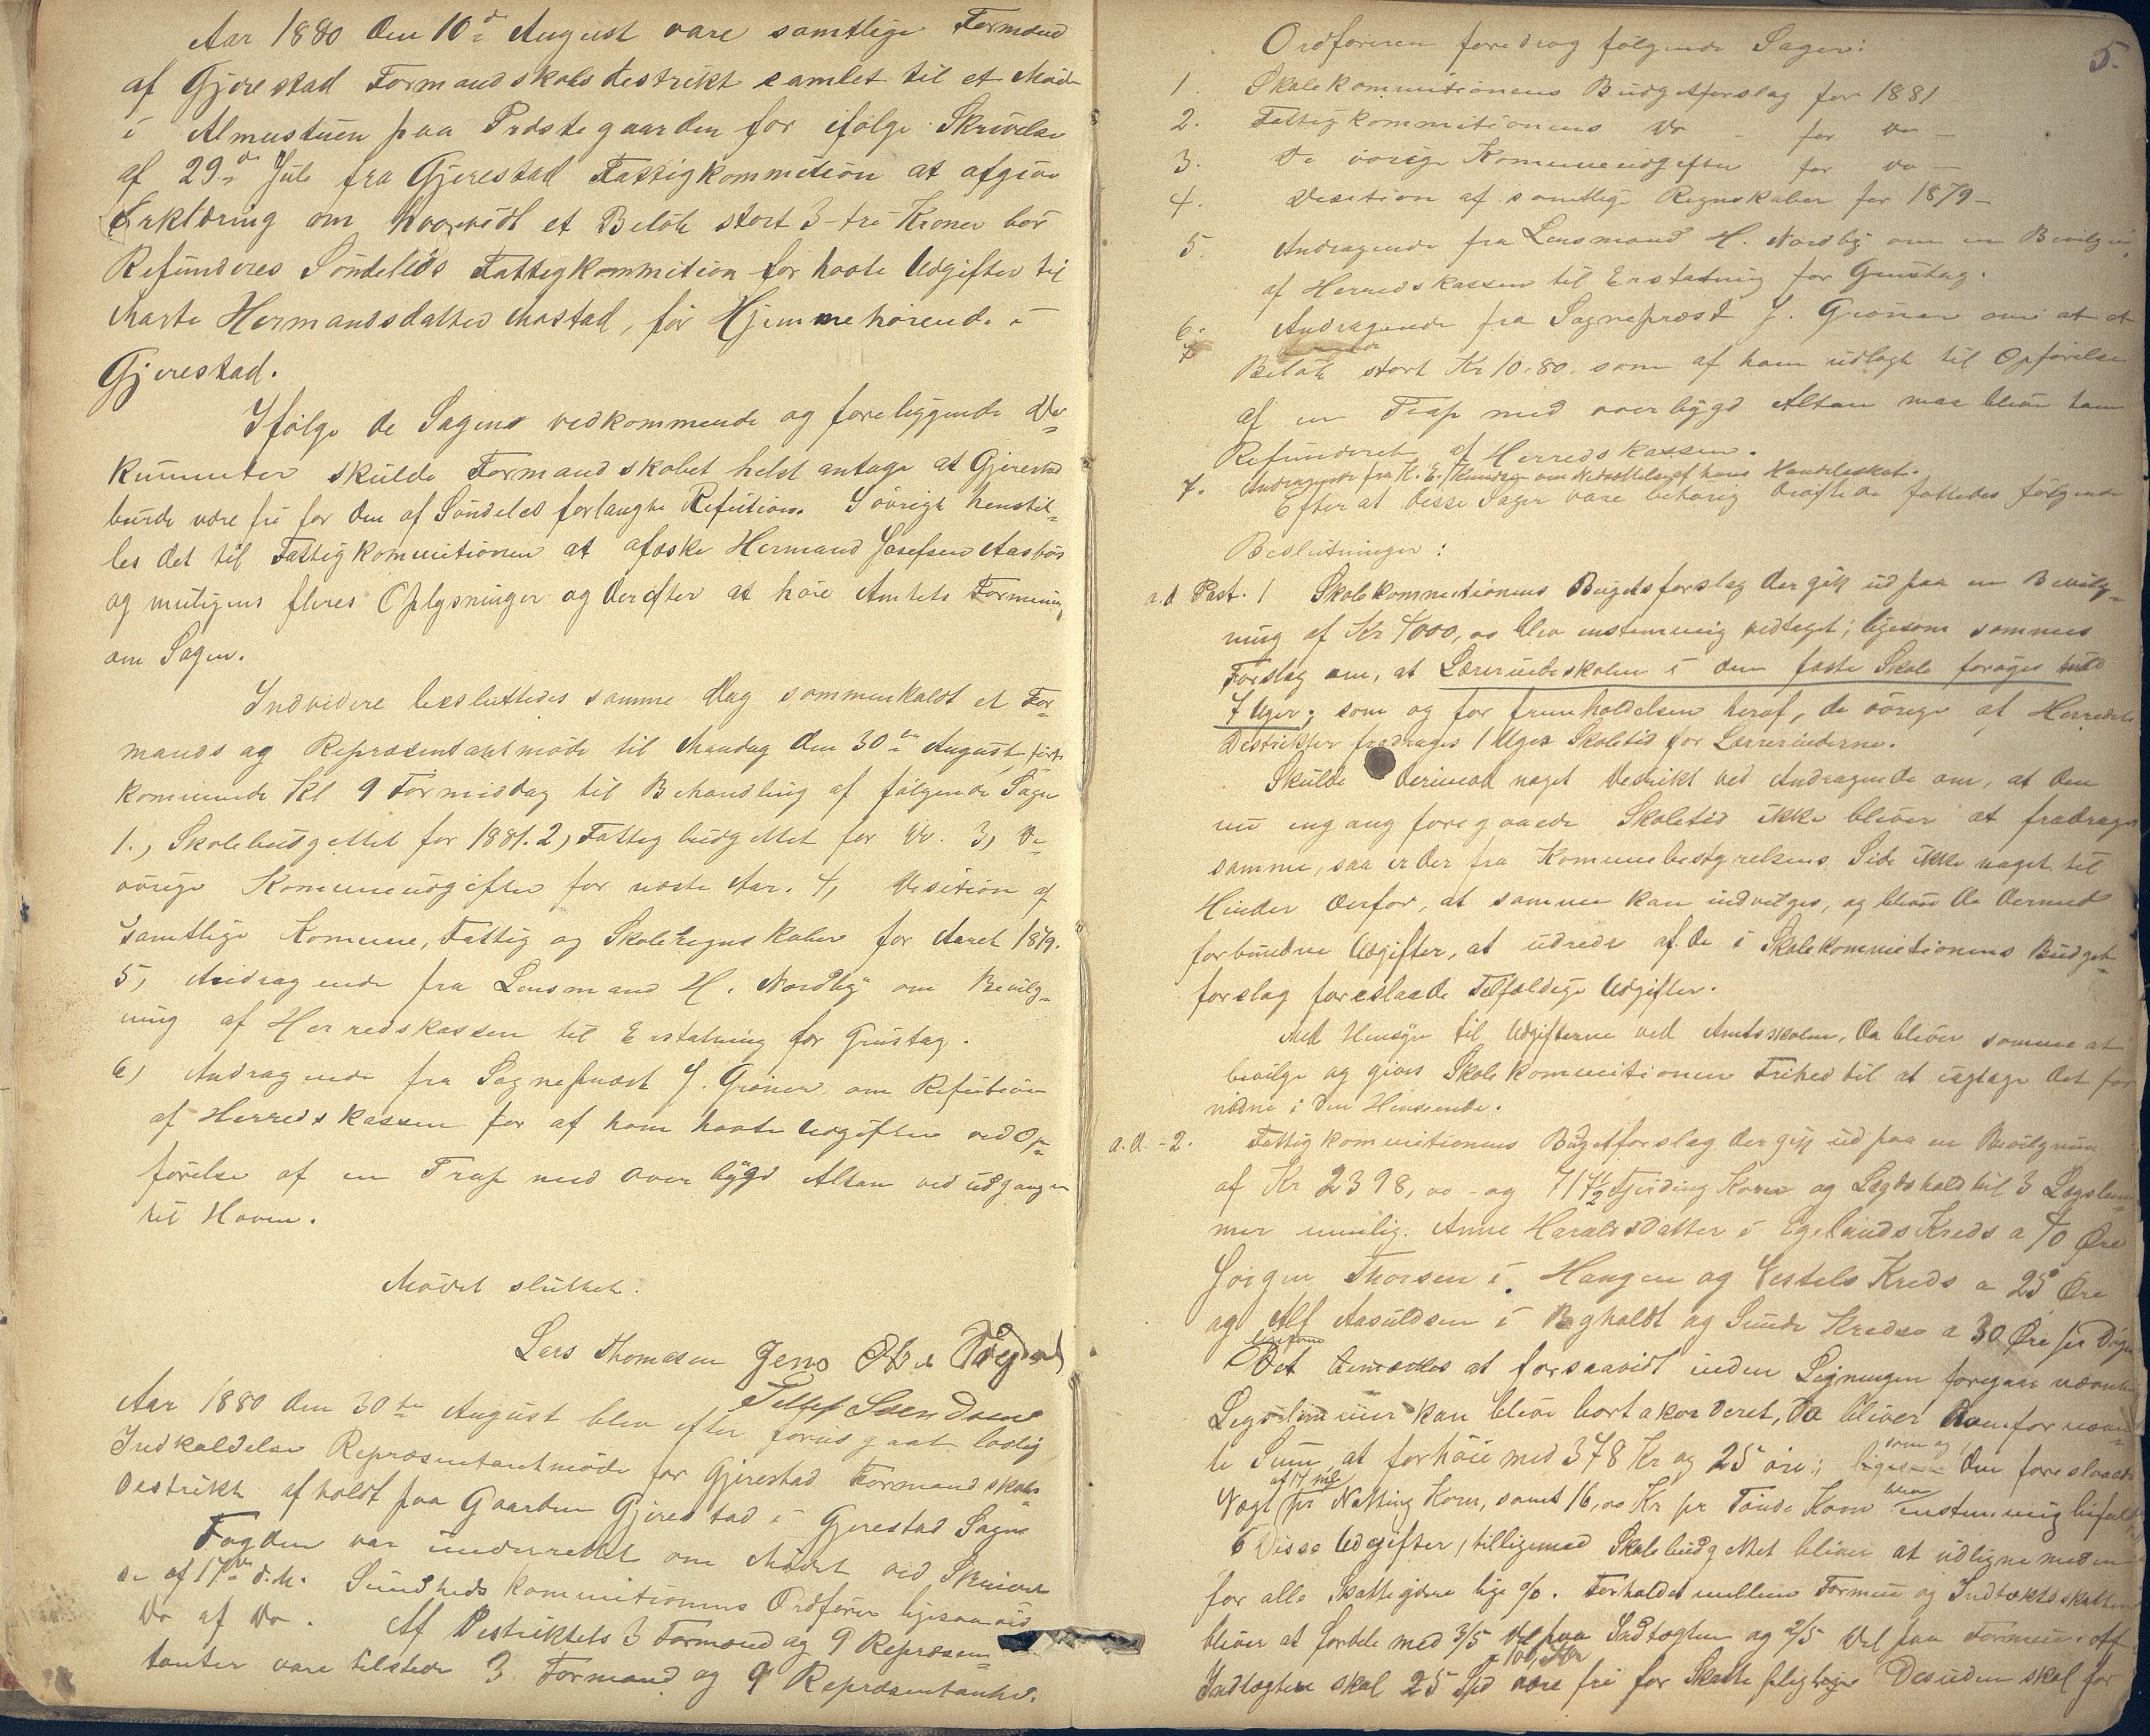 Aar 1880 den 10de August vare samtlige Formænd
af Gjerestad Formandskabsdestrikt samlet til et Møde
i Almustuen paa Præstegaarden for ifølge Skrivelse
af 29de Juli fra Gjerestad Fattigkommition at afgive
Erklæring om hvorvidt et Beløb stort 3-tre Kroner bør
Refunderes Søndeleds Fattigkommition for havte Udgifter til
Marte Hermandsdatter Mostad, før Hjemmehørende i
Gjerestad.
Ifølge de Sagens vedkommende og foreliggende Do-
kumenter skulde Formandskabet helst antage at Gjerestad
burde være fri for den af Søndeled forlangte Refution. I øvrigt henstil-
les det til Fattigkommitionen at afæske Hermand Josefsen Aasbøs
og muligens fleres Oplysninger og derefter at høre Amtets Formening
om Sagen.
Indvidere besluttedes samme Dag sammenkaldt et For-
mands og Repræsentantmøde til Mandag den 30te August først-
kommende Kl 9 Formidag til Behandling af følgende Sager
1., Skolebudgettet for 1881. 2, Fattigbudgettet for Do. 3, De
øvrige Komuneudgifter for næste Aar. 4, Desition af
samtlige Komune, Fattig og Skoleregnskaber for Aaret 1879.
5, Andragende fra Lensmand H. Nordby om Bevilg-
ning af Herredskassen til Erstatning for Grustag.
6, Andragende fra Sognepræst J. Grøner om Refution
af Herredskassen for af ham havte Udgifter ved Op-
førelse af en Trap med overbygd Altan ved udgangen
til Haven.
Mødet sluttet.
Lars Thomasen Jens
Tellef Svendsen
Aar 1880 den 30te August blev efter forudgaat lovlig
Indkaldelse Repræsentantmøde for Gjerestad Formandskabs-
Destrikt afholdt paa Gaarden Gjerestad i Gjerestad Sogn
Fogden var underrettet om Mødet ved Skrivel-
se af 17de d.M. Sundhedskommitionens Ordfører ligesaa ved
Do af Do. Af Destriktets 3 Formænd og 9 Repræsen-
tanter vare tilstede 3 Formænd og 9 Repræsentanter.
5.
Ordføreren foredrog følgende Sager:
1. Skolekommitionens Budgetforslag for 1881
2. Fattigkommitionens Do - for Do -
3. De øvrige Komuneudgifter for Do -
4. Desition af samtlige Regnskaber for 1879 -
5. Andragende fra Lensmand H. Nordby om en Bevilgning
af Herredskassen til Erstatning for Grustag.
6. Andragende fra Sognepræst J. Grøner om at et
Beløb stort Kr 10.80. som af ham udlagt til Opførelse
af en Trap med overbygd Altan maa blive ham
Refunderet af Herredskassen.
7. Andragende fra K. E. Knudsen om Nedsettelse af hans Handelsskat.
Efter at disse Sager vare behørig drøftede fattedes følgende
Beslutninger:
a.d Post. 1 Skolekommitionens Bugetsforslag der gik ud paa en Bevilg-
ning af Kr 4000,00 blev enstemmig vedtaget; ligesom sammes
Forslag om, at Lærerindeskolen i den faste Skole forøges med
7 Uger; som og for fremholdelsen heraf, de øvrige af Herredets
Destrikter fradrages 1 Uges Skoletid for Lærerinderne.
Skulde derimod noget Destrikt ved Andragende om, at den
nu engang foregaaede Skoletid ikke bliver at fradrage
samme, saa er der fra Komunebestyrelsens Side ikke noget til
Hinder derfor, at samme kan indvilges, og blive de dermed
forbundne Udgifter, at udrede af de i Skolekommitionens Budget-
forslag foreslaaede Tilfældige Udgifter.
Med Hensyn til Udgifterne ved Amtsskolen, da bliver samme at
bevilge og gives Skolekommitionen Frihed til at iagtage det for-
nødne i den Henseende.
a.d. - 2. Fattigkommitionens Bugetforslag der gik ud paa en Bevilgning
af Kr 2398,00 - og 717½ Fjerding Korn og Lægdshold til 3 Lægslem-
mer nemlig. Anne Haraldsdatter i Egelands Kreds a 40 Øre
Jørgen Thorsen i Haugen og Vestøls Kreds a 25 Øre
og Alf Aasuldsen i Bygholdt og Sunde Kredse a 30 Øre pr Dag
Det bemærkes at forsaavidt inden Ligningen foregaar nævnte
Legdslemmer kan blive bortakorderet, da bliver ovenfornævn-
te Sum at forhøie med 378 Kr og 25 øre; som og den foreslaaede
Vægt af 17 mk pr Natting Korn, samt 16,00 Kr pr Tønde Korn blev enstemmig bifaldt
Disse Udgifter, tilligemed Skolebudgettet bliver at udligne med en
for alle Skatteydere lige %. Forholdet mellem Formue og Indtægtsskatten
bliver at fordele med 3/5 Del paa Indtægten og 2/5 Del paa Formuen. Af
Indtægten skal 25 Spd være fri for Skattepligtige Desuden skal for